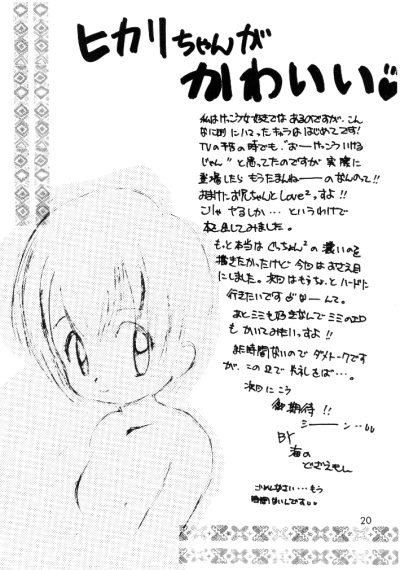 ヒカリちゃんが
かわいい
私はけっこう女好きではあるのですが、こん
なに別にハマったキャラははじめてです!
TVの予告の時でも、"おーけっこういける
じゃん"と思ってたのですが実際に
登場したらもうたまんねーーのなんのって!!
おまけにお兄ちゃんとLove²っすよ!!
こりゃやるしか…というわけで
本を出してみました。
もっと本当はぐっちゃん²の濃いのを
描きたかったけど今回はおさえ目
にしました。次回はもうちっとハードに
行きたいですよゆーんで。
あとミミも好きなんでミミの
もかいてみたいっすよ!!
時間ないのでダメトークです
が、この辺で失礼しば…。
次回にこう
御期待!!
シーーン…
BY
海の
どざえもん
ごめんなさい…もう
時間ないんです
20